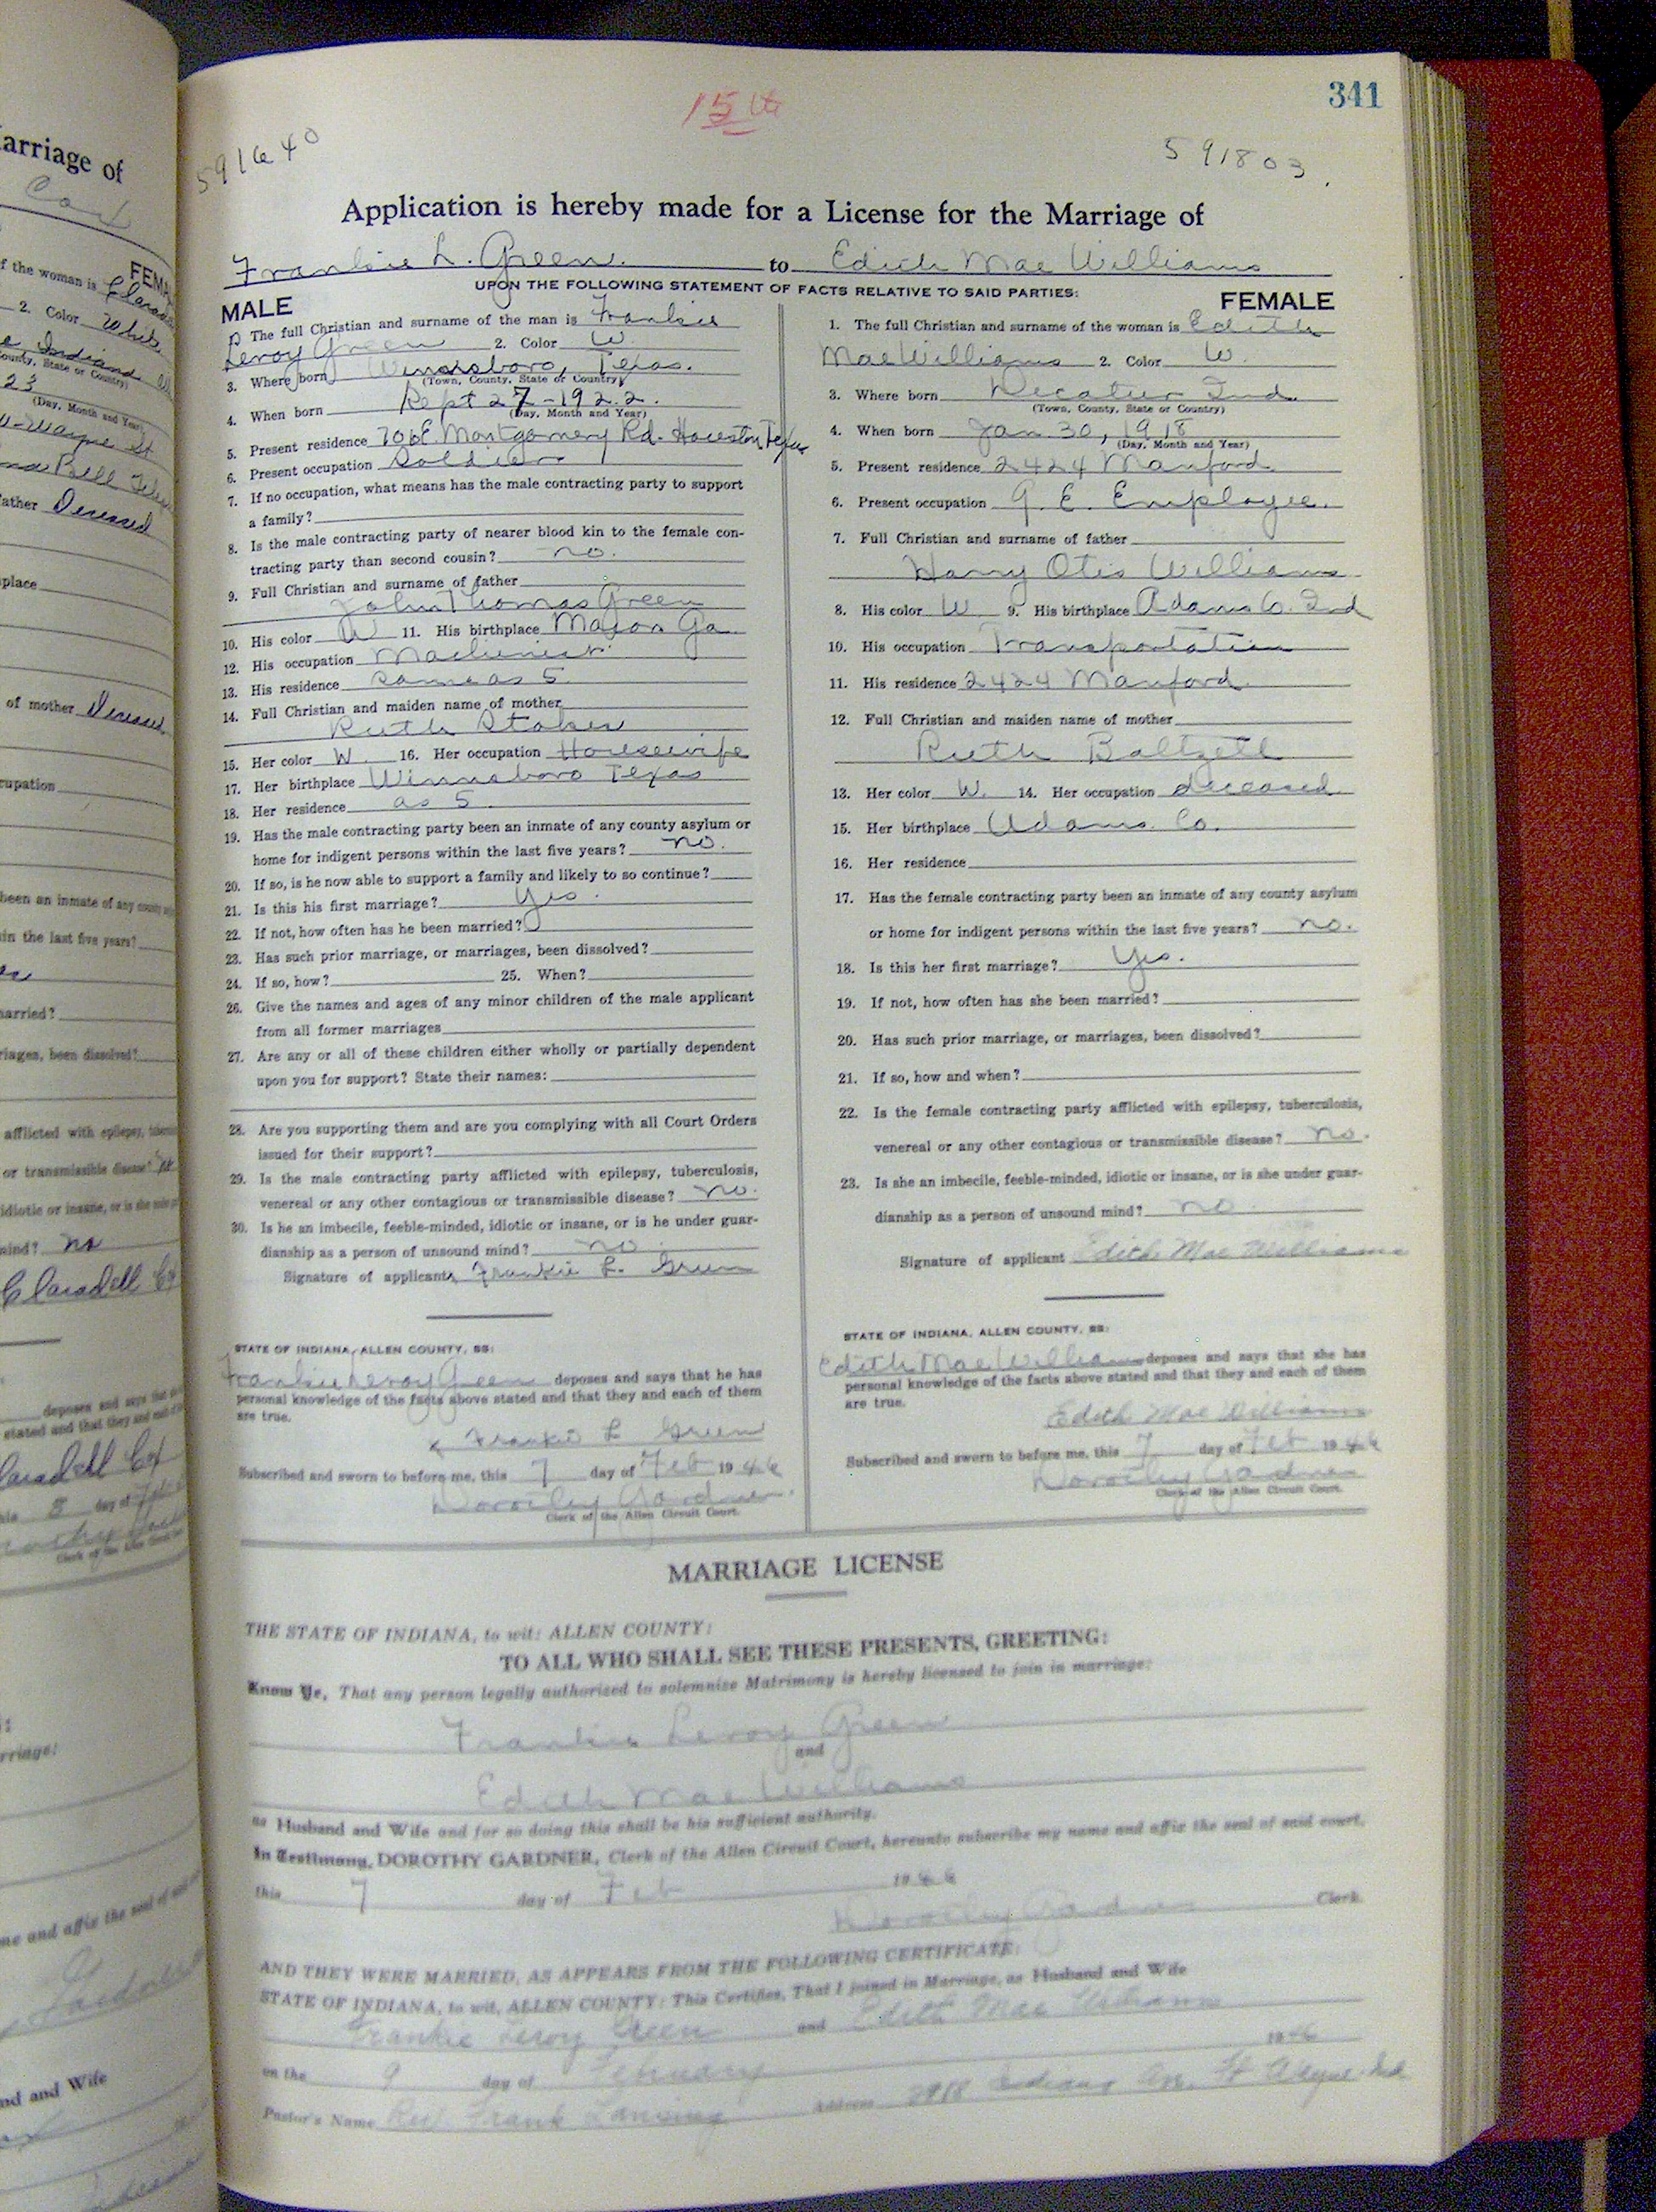 341
15th
591640
591803
Application is hereby made for a License for the Marriage of
Frankie L. Green. to Edith Mae Williams
UPON THE FOLLOWING STATEMENT OF FACTS RELATIVE TO SAID PARTIES:
MALE
The full Christian and surname of the man is Frankie
Leroy Green 2. Color W.
3. Where born Winnsboro, Texas.
(Town, County, State or Country)
4. When born Sept 27-1922.
(Day, Month and Year)
5. Present residence 706 E. Montgomery Rd. Houston Texas
6. Present occupation Soldier
7. If no occupation, what means has the male contracting party to support
a family?
8. Is the male contracting party of nearer blood kin to the female con-
tracting party than second cousin? no.
9. Full Christian and surname of father
John Thomas Green
10. His color W 11. His birthplace Macon Ga.
12. His occupation Machinist
13. His residence same as 5.
14. Full Christian and maiden name of mother
Ruth
15. Her color W. 16. Her occupation Housewife
17. Her birthplace Winnsboro Texas
18. Her residence as 5
19. Has the male contracting party been an inmate of any county asylum or
home for indigent persons within the last five years? no.
20. If so, is he now able to support a family and likely to so continue?
21. Is this his first marriage? Yes.
22. If not, how often has he been married?
23. Has such prior marriage, or marriages, been dissolved?
24. If so, how? 25. When?
26. Give the names and ages of any minor children of the male applicant
from all former marriages
27. Are any or all of these children either wholly or partially dependent
upon you for support? State their names:
28. Are you supporting them and are you complying with all Court Orders
issued for their support?
29. Is the male contracting party afflicted with epilepsy, tuberculosis,
venereal or any other contagious or transmissible disease? no.
30. Is he an imbecile, feeble-minded, idiotic or insane, or is he under guar-
dianship as a person of unsound mind? no.
Signature of applicant Frankie L. Green
STATE OF INDIANA, ALLEN COUNTY, SS:
Frankie Leroy Green deposes and says that he has
personal knowledge of the facts above stated and that they and each of them
are true.
x Frankie L Green
Subscribed and sworn to before me, this 7 day of Feb 1946
Dorothy Gardner.
Clerk of the Allen Circuit Court.
FEMALE
1. The full Christian and surname of the woman is Edith
Mae Williams 2. Color W.
3. Where born Decatur Ind.
(Town, County, State or Country)
4. When born Jan. 30, 1918
(Day, Month and Year)
5. Present residence 2424 Manford
6. Present occupation G. E. Employee.
7. Full Christian and surname of father
Harry Otis Williams
8. His color W 9. His birthplace Adams Co. Ind
10. His occupation Transportation
11. His residence 2424 Manford.
12. Full Christian and maiden name of mother
Ruth Baltzell
13. Her color W. 14. Her occupation deceased.
15. Her birthplace Adams. Co.
16. Her residence
17. Has the female contracting party been an inmate of any county asylum
or home for indigent persons within the last five years? no.
18. Is this her first marriage? Yes.
19. If not, how often has she been married?
20. Has such prior marriage, or marriages, been dissolved?
21. If so, how and when?
22. Is the female contracting party afflicted with epilepsy, tuberculosis,
venereal or any other contagious or transmissible disease? no.
23. Is she an imbecile, feeble-minded, idiotic or insane, or is she under guar-
dianship as a person of unsound mind? no
Signature of applicant Edith Mae Williams
STATE OF INDIANA, ALLEN COUNTY, SS:
Edith Mae Williams deposes and says that she has
personal knowledge of the facts above stated and that they and each of them
are true.
Edith Mae Williams
Subscribed and sworn to before me, this 7 day of Feb 1946
Dorothy Gardner
Clerk of the Allen Circuit Court.
MARRIAGE LICENSE
THE STATE OF INDIANA, to wit: ALLEN COUNTY:
TO ALL WHO SHALL SEE THESE PRESENTS, GREETING:
Know Ye, That any person legally authorized to solemnize Matrimony is hereby licensed to join in marriage:
Frankie Leroy Green
and
Edith Mae Williams
as Husband and Wife and for so doing this shall be his sufficient authority.
In Testimony, DOROTHY GARDNER, Clerk of the Allen Circuit Court, hereunto subscribe my name and affix the seal of said court,
this 7 day of Feb 1946
Dorothy Gardner Clerk
AND THEY WERE MARRIED, AS APPEARS FROM THE FOLLOWING CERTIFICATE:
STATE OF INDIANA, to wit, ALLEN COUNTY: This Certifies, That I joined in Marriage, as Husband and Wife
Frankie Leroy Green and Edith Mae Williams
on the 9 day of February 1946
Pastor's Name Rev. Frank Lansing Address 2918 Ft Wayne Ind